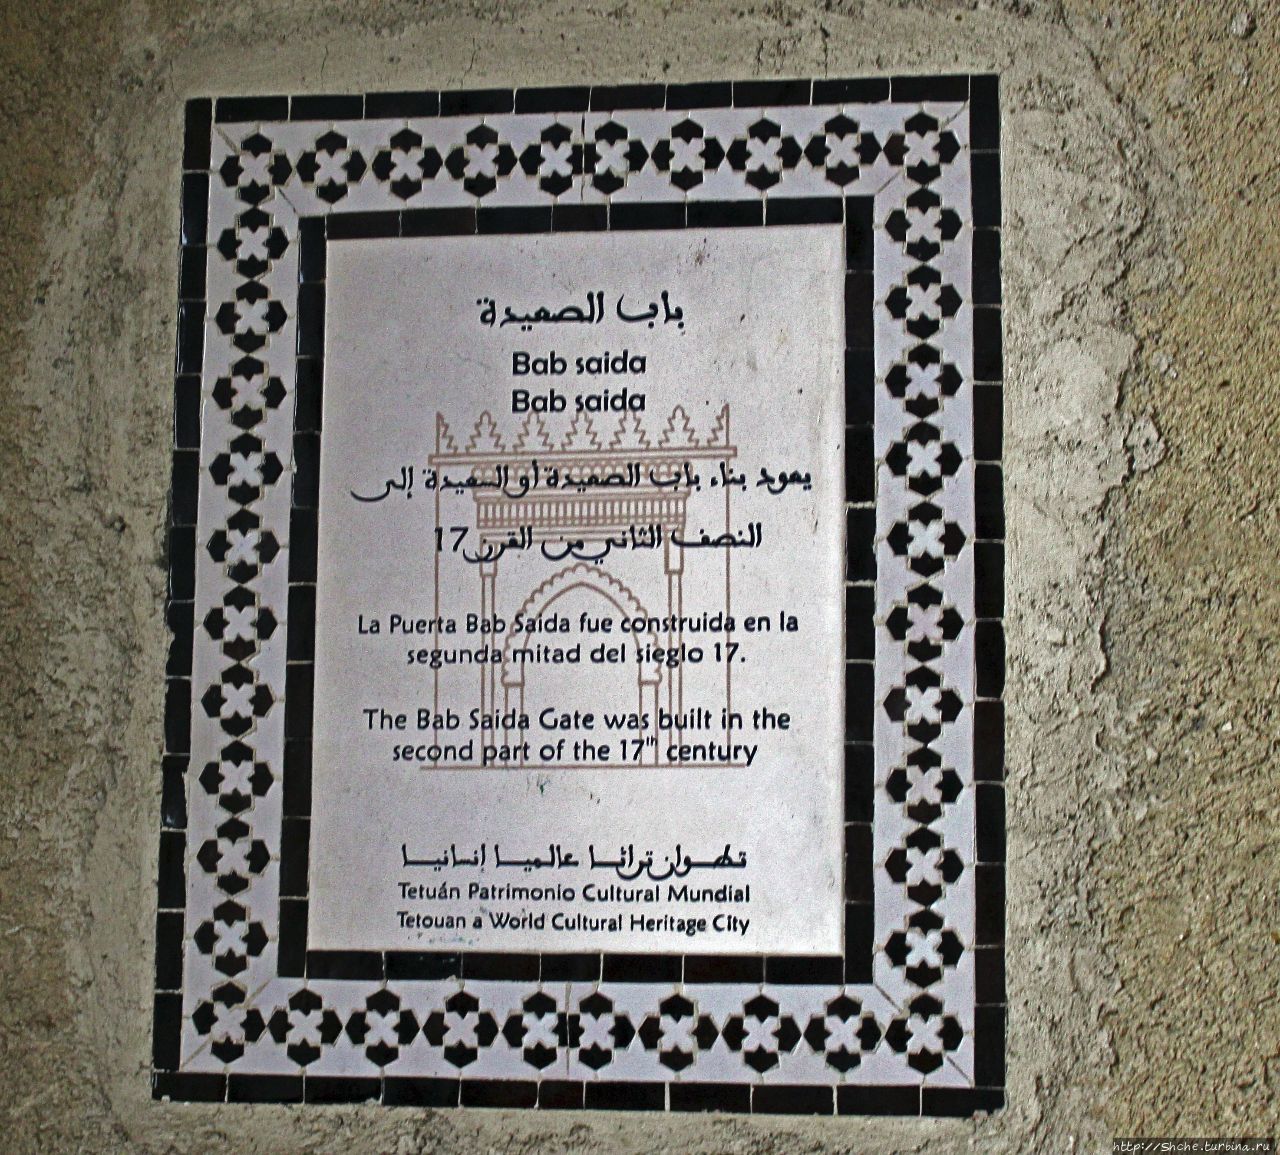 باب الصعيدة
Bab saida
Bab saida
يعود بناء باب الصعيدة أو السعيدة إلى
النصف الثاني من القرن 17
La Puerta Bab Saida fue construida en la
segunda mitad del sieglo 17.
The Bab Saida Gate was built in the
second part of the 17th century
تطوان تراثا عالميا إنسانيا
Tetuán Patrimonio Cultural Mundial
Tetouan a World Cultural Heritage City
http://Shche.turbina.ru